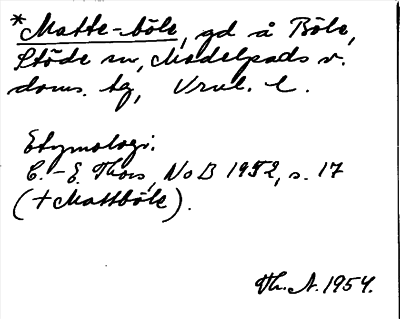 *Matte-böle, gd å Böle,
Stöde sn, Medelpads v.
doms. tg, Vrnl. l.
Etymologi:
C.-E. Thors, NoB 1952, s. 17
(†Mattböle).
Th. A. 1954.